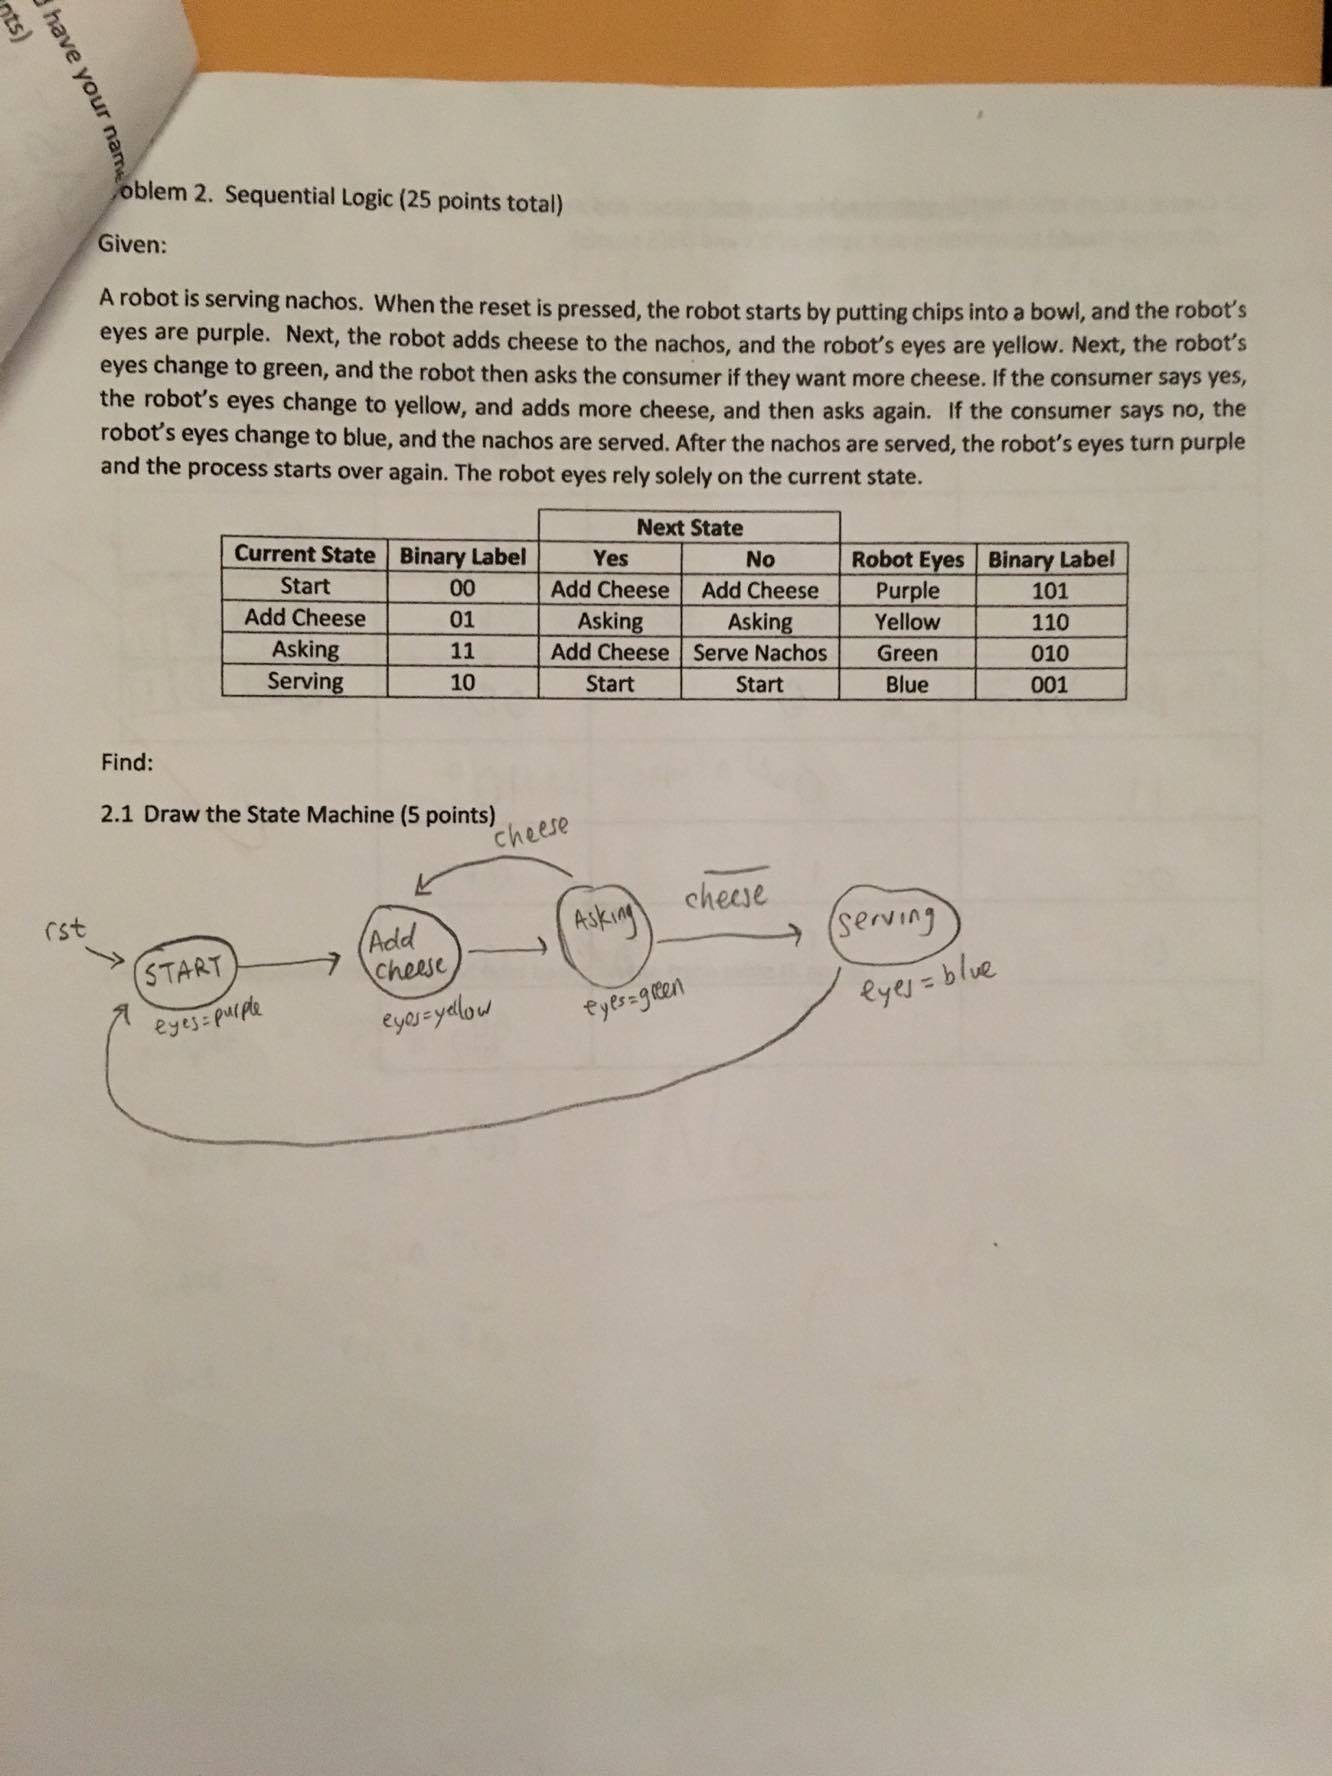 nts)
have your name
oblem 2. Sequential Logic (25 points total)
Given:
A robot is serving nachos. When the reset is pressed, the robot starts by putting chips into a bowl, and the robot's
eyes are purple. Next, the robot adds cheese to the nachos, and the robot's eyes are yellow. Next, the robot's
eyes change to green, and the robot then asks the consumer if they want more cheese. If the consumer says yes,
the robot's eyes change to yellow, and adds more cheese, and then asks again. If the consumer says no, the
robot's eyes change to blue, and the nachos are served. After the nachos are served, the robot's eyes turn purple
and the process starts over again. The robot eyes rely solely on the current state.
Next State
Current State Binary Label Yes No Robot Eyes Binary Label
Start 00 Add Cheese Add Cheese Purple 101
Add Cheese 01 Asking Asking Yellow 110
Asking 11 Add Cheese Serve Nachos Green 010
Serving 10 Start Start Blue 001
Find:
2.1 Draw the State Machine (5 points)
cheese
cheese
rst
START
eyes=purple
Add
cheese
eyes=yellow
Asking
eyes=green
serving
eyes=blue